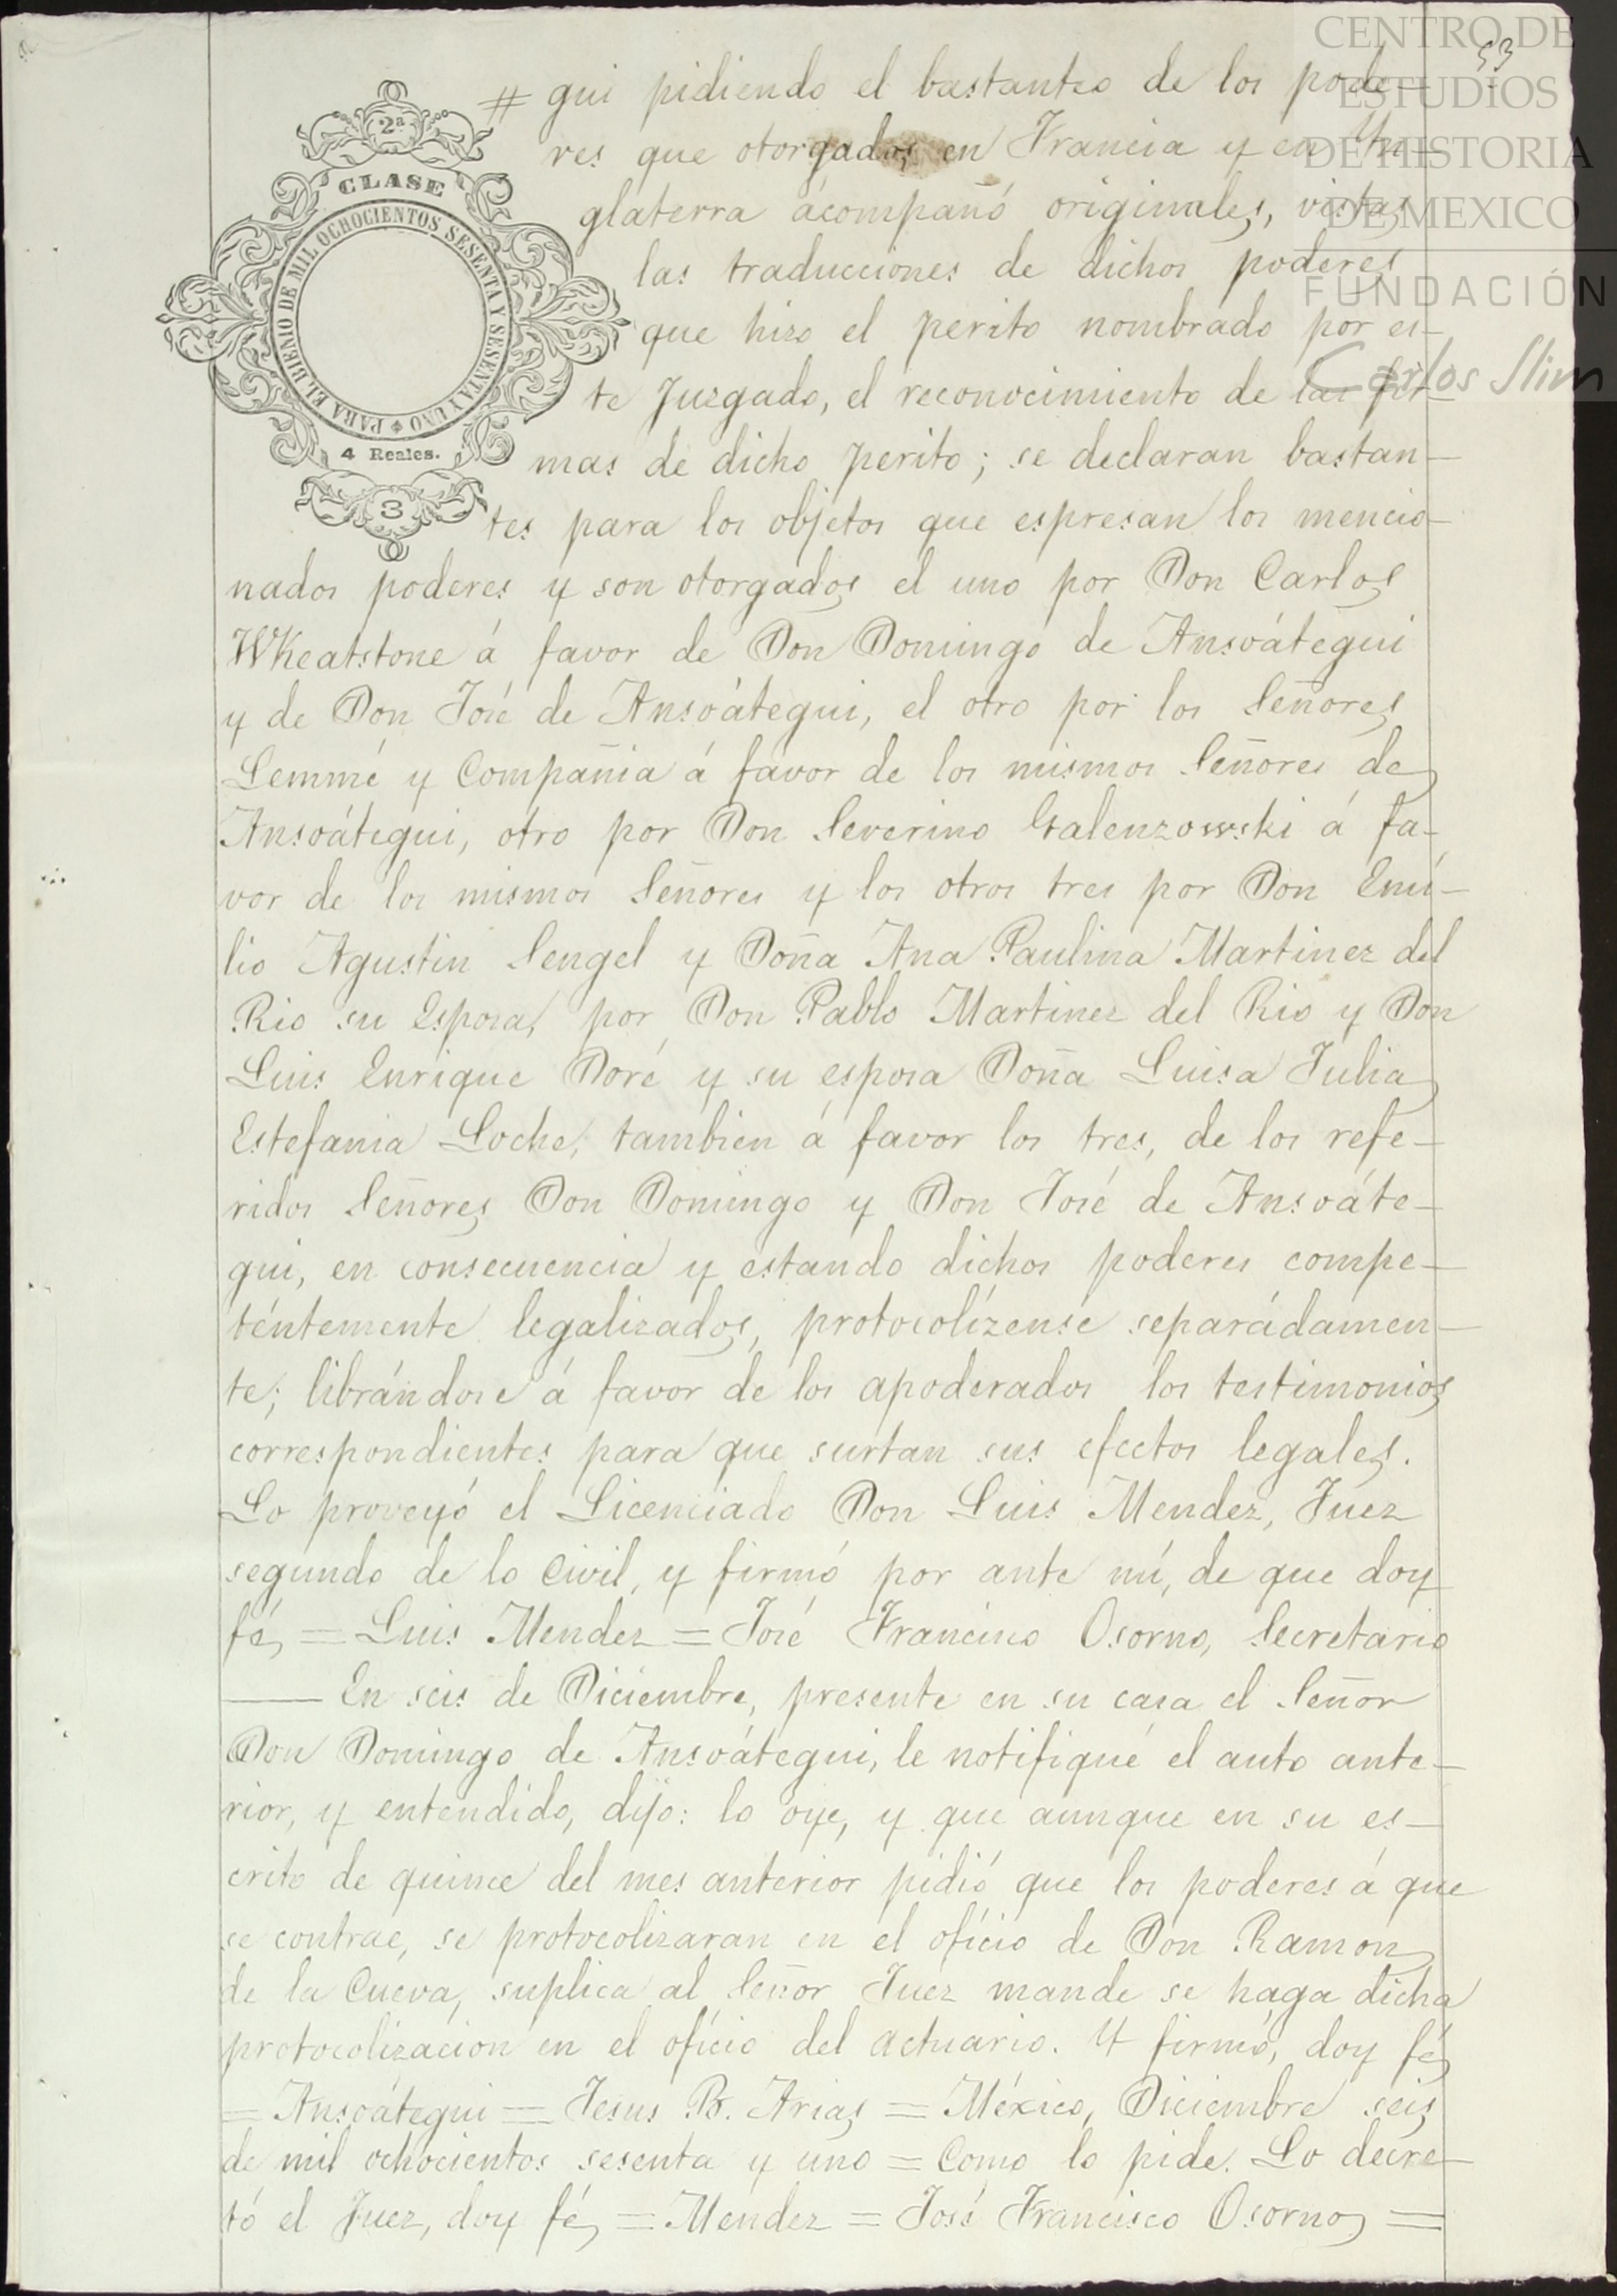 CENTRO DE
ESTUDIOS
DE HISTORIA
DE MEXICO
FUNDACIÓN
Carlos Slim
53
2ª
CLASE
PARA EL BIENIO DE MIL OCHOCIENTOS SESENTA Y SESENTA Y UNO
4 Reales.
3
# gui pidiendo el bastanteo de los pode-
res que otorgados en Francia y en Yn-
glaterra ácompañó originales, vistas
las traducciones de dichos poderes
que hizo el perito nombrado por es-
te Juzgado, el reconocimiento de las fir-
mas de dicho perito; se declaran bastan-
tes para los objetos que espresan los mencio-
nados poderes y son otorgados el uno por Don Carlos
WKeatstone á favor de Don Domingo de Ansoátegui
y de Don José de Ansoátegui, el otro por los Señores
Lemmé y Compañia á favor de los mismos Señores de
Ansoátegui, otro por Don Severino Galenzowski á fa-
vor de los mismos Señores y los otros tres por Don Emi-
lio Agustin Sengel y Doña Ana Paulina Martinez del
Rio su Esposa, por Don Pablo Martinez del Rio y Don
Luis Enrique Doré y su esposa Doña Luisa Julia
Estefania Loche, tambien á favor los tres, de los refe-
ridos Señores Don Domingo y Don José de Ansoáte-
gui, en consecuencia y estando dichos poderes compe-
téntemente legalizados, protocolízense separádamen-
te; librándose á favor de los apoderados los testimonios
correspondientes para que surtan sus efectos legales.
Lo proveyó el Licenciado Don Luis Mendez, Juez
segundo de lo Civil, y firmó por ante mí, de que doy
fé, = Luis Mendez = José Francisco Osorno, Secretario
—— En seis de Diciembre, presente en su casa el Señor
Don Domingo de Ansoátegui, le notifiqué el auto ante-
rior, y entendido, dijo: lo oye, y que aunque en su es-
crito de quince del mes anterior pidió que los poderes á que
se contrae, se protocolizaran en el oficio de Don Ramon
de la Cueva, suplica al Señor Juez mande se haga dicha
protocolizacion en el oficio del actuario. Y firmó, doy fé,
= Ansoátegui = Jesus B. Arias = México, Diciembre seis
de mil ochocientos sesenta y uno = Como lo pide. Lo decre-
tó el Juez, doy fé, = Mendez = José Francisco Osorno, =